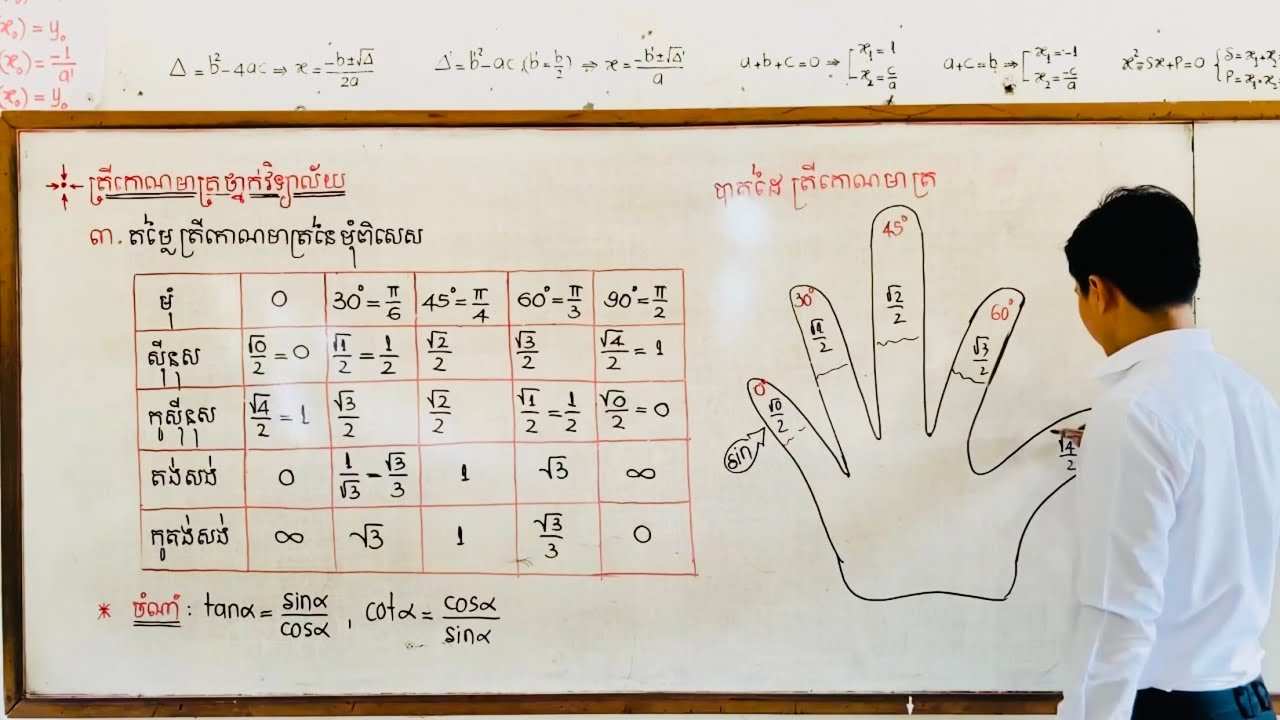 (x₀) = y₀
(x₀) = -1/a'
(x₀) = y₀
Δ = b² - 4ac ⇒ x = (-b±√Δ)/2a
Δ' = b'² - ac, (b' = b/2) ⇒ x = (-b'±√Δ')/a
a+b+c=0 ⇒ [ x₁ = 1
x₂ = c/a
a+c=b ⇒ [ x₁ = -1
x₂ = -c/a
x² - Sx + P = 0 { S = x₁ + x₂
P = x₁ · x₂
ត្រីកោណមាត្រថ្នាក់វិទ្យាល័យ
៣. តម្លៃត្រីកោណមាត្រនៃមុំពិសេស
មុំ 0 30° = π/6 45° = π/4 60° = π/3 90° = π/2
ស៊ីនុស √0/2 = 0 √1/2 = 1/2 √2/2 √3/2 √4/2 = 1
កូស៊ីនុស √4/2 = 1 √3/2 √2/2 √1/2 = 1/2 √0/2 = 0
តង់សង់ 0 1/√3 = √3/3 1 √3 ∞
កូតង់សង់ ∞ √3 1 √3/3 0
* ចំណាំ : tanα = sinα/cosα , cotα = cosα/sinα
បាតដៃ ត្រីកោណមាត្រ
0° √0/2
30° √1/2
45° √2/2
60° √3/2
√4/2
sin